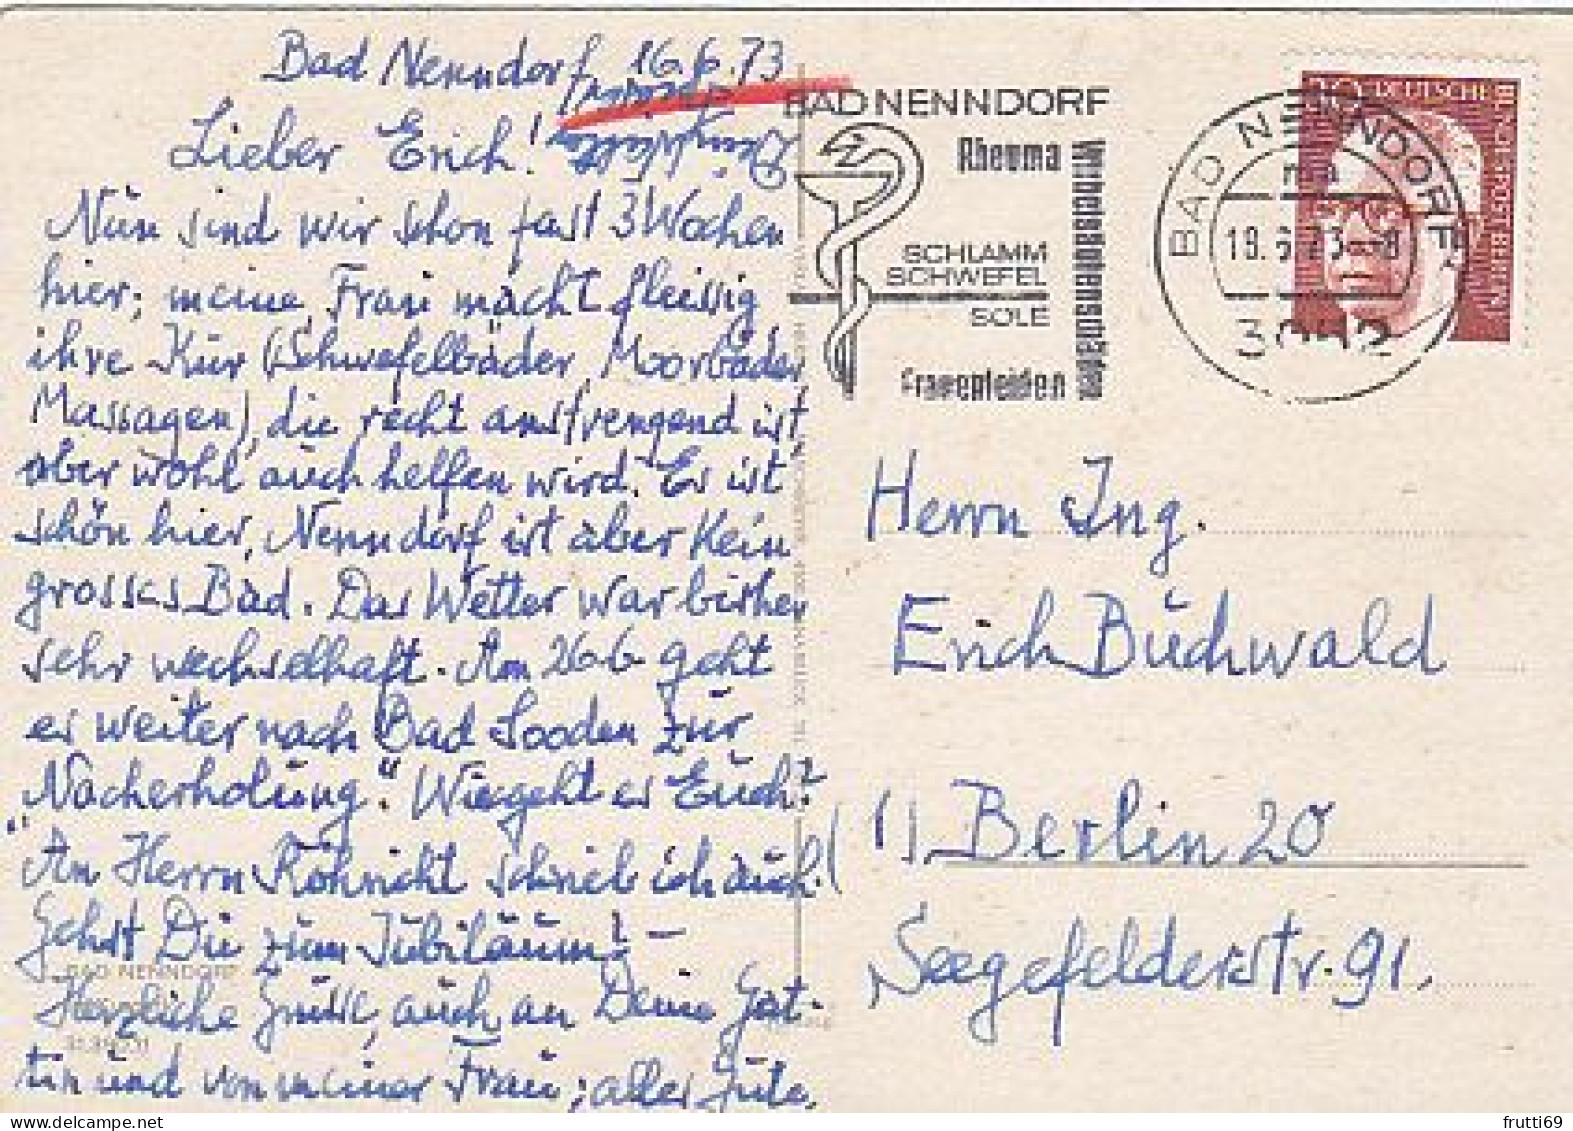 Bad Nenndorf, 16.6.73
Lieber Erich!
Nun sind wir schon fast 3 Wochen
hier; meine Frau macht fleissig
ihre Kur (Schwefelbäder, Moorbäder,
Massagen), die recht anstrengend ist,
aber wohl auch helfen wird. Es ist
schön hier, Nenndorf ist aber kein
grosses Bad. Das Wetter war bisher
sehr wechselhaft. Am 26.6. geht
es weiter nach Bad Sooden zur
"Nacherholung". Wie geht es Euch?
An Herrn Röhricht schrieb ich auch!
Gehst Du zum Jubiläum? –
Herzliche Grüsse, auch an Deine Gat-
tin und von meiner Frau; alles Gute,
BAD NENNDORF
BAD NENNDORF
Rheuma
Wirbelsäulenschäden
SCHLAMM
SCHWEFEL
SOLE
Frauenleiden
BAD NENNDORF
3052
DEUTSCHE BUNDESPOST BERLIN
Herrn Ing.
Erich Buchwald
1) Berlin 20
Seegefelderstr. 91.
frutti69